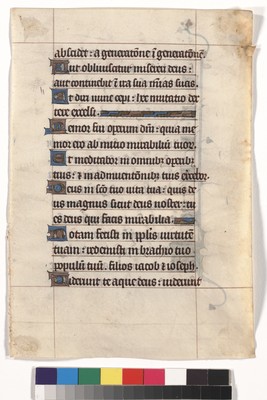 abscidet: a generatione i generatione.
Aut obliviscetur misereri deus:
aut continebit i ira sua mias suas.
Et dixi nunc cepi: hec mutatio dex
tere excelsi.
Memor fui operum dni: quia me
mor ero ab initio mirabilium tuor.
Et meditabor in omnibz operibz
tuis: et in adinventionibz tuis exercebor.
Deus in sco via tua: quis de
us magnus sicut deus noster: tu
es deus qui facis mirabilia.
Notam fecisti in pplis virtute
tuam: redemisti in brachio tuo
populum tuu. filios iacob et ioseph.
Viderunt te aque deus: viderunt